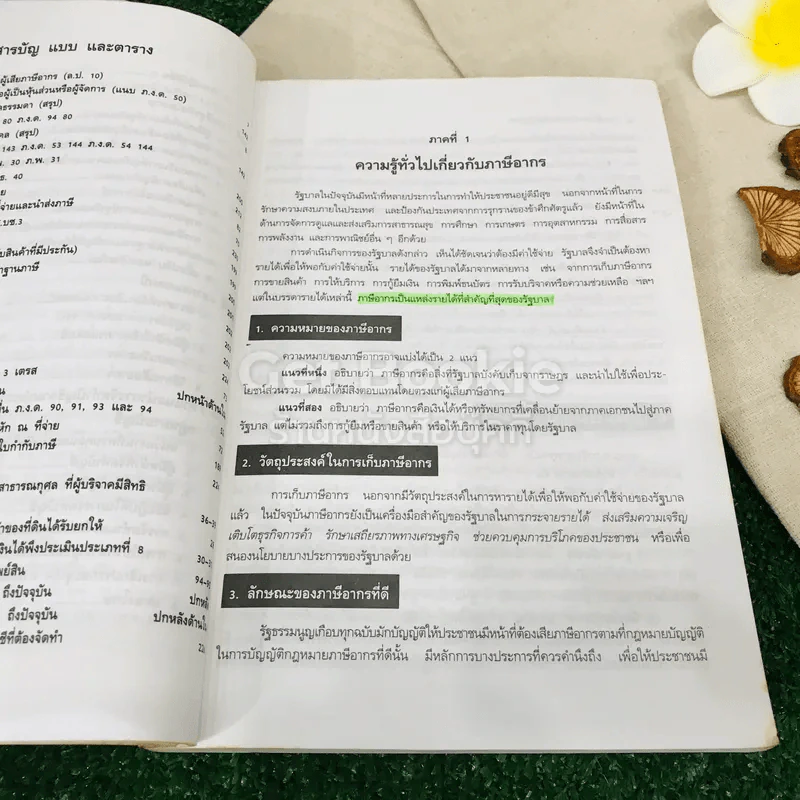 สารบัญ แบบ และตาราง
ผู้เสียภาษีอากร (ล.ป. 10)
ผู้เป็นหุ้นส่วนหรือผู้จัดการ (แนบ ภ.ง.ด. 50)
ธรรมดา (สรุป)
80 ภ.ง.ด. 94 80
(สรุป)
143 ภ.ง.ด. 53 144 ภ.ง.ด. 54 144
30 ภ.พ. 31
40
จ่ายและนำส่งภาษี
บช.3
บสินค้าที่มีประกัน)
ฐานภาษี
3 เตรส
ปกหน้าด้านใน
ภ.ง.ด. 90, 91, 93 และ 94
หัก ณ ที่จ่าย
ใบกำกับภาษี
สาธารณกุศล ที่ผู้บริจาคมีสิทธิ
าของที่ดินได้รับยกให้
เงินได้พึงประเมินประเภทที่ 8
ทรัพย์สิน
ถึงปัจจุบัน
ถึงปัจจุบัน
ปกหลังด้านใน
ชีที่ต้องจัดทำ
ภาคที่ 1
ความรู้ทั่วไปเกี่ยวกับภาษีอากร
รัฐบาลในปัจจุบันมีหน้าที่หลายประการในการทำให้ประชาชนอยู่ดีมีสุข นอกจากหน้าที่ในการ
รักษาความสงบภายในประเทศ และป้องกันประเทศจากการรุกรานของข้าศึกศัตรูแล้ว ยังมีหน้าที่ใน
ด้านการจัดการดูแลและส่งเสริมการสาธารณสุข การศึกษา การเกษตร การอุตสาหกรรม การสื่อสาร
การพลังงาน และการพาณิชย์อื่น ๆ อีกด้วย
การดำเนินกิจการของรัฐบาลดังกล่าว เห็นได้ชัดเจนว่าต้องมีค่าใช้จ่าย รัฐบาลจึงจำเป็นต้องหา
รายได้เพื่อให้พอกับค่าใช้จ่ายนั้น รายได้ของรัฐบาลได้มาจากหลายทาง เช่น จากการเก็บภาษีอากร
การขายสินค้า การให้บริการ การกู้ยืมเงิน การพิมพ์ธนบัตร การรับบริจาคหรือความช่วยเหลือ ฯลฯ
แต่ในบรรดารายได้เหล่านี้ ภาษีอากรเป็นแหล่งรายได้ที่สำคัญที่สุดของรัฐบาล
1. ความหมายของภาษีอากร
ความหมายของภาษีอากรอาจแบ่งได้เป็น 2 แนว
แนวที่หนึ่ง อธิบายว่า ภาษีอากรคือสิ่งที่รัฐบาลบังคับเก็บจากราษฎร และนำไปใช้เพื่อประ-
โยชน์ส่วนรวม โดยมิได้มีสิ่งตอบแทนโดยตรงแก่ผู้เสียภาษีอากร
แนวที่สอง อธิบายว่า ภาษีอากรคือเงินได้หรือทรัพยากรที่เคลื่อนย้ายจากภาคเอกชนไปสู่ภาค
รัฐบาล แต่ไม่รวมถึงการกู้ยืมหรือขายสินค้า หรือให้บริการในราคาทุนโดยรัฐบาล
2. วัตถุประสงค์ในการเก็บภาษีอากร
การเก็บภาษีอากร นอกจากมีวัตถุประสงค์ในการหารายได้เพื่อให้พอกับค่าใช้จ่ายของรัฐบาล
แล้ว ในปัจจุบันภาษีอากรยังเป็นเครื่องมือสำคัญของรัฐบาลในการกระจายรายได้ ส่งเสริมความเจริญ
เติบโตธุรกิจการค้า รักษาเสถียรภาพทางเศรษฐกิจ ช่วยควบคุมการบริโภคของประชาชน หรือเพื่อ
สนองนโยบายบางประการของรัฐบาลด้วย
3. ลักษณะของภาษีอากรที่ดี
รัฐธรรมนูญเกือบทุกฉบับมักบัญญัติให้ประชาชนมีหน้าที่ต้องเสียภาษีอากรตามที่กฎหมายบัญญัติ
ในการบัญญัติกฎหมายภาษีอากรที่ดีนั้น มีหลักการบางประการที่ควรคำนึงถึง เพื่อให้ประชาชนมี
Get Bookie
ร้านหนังสือยุคที่